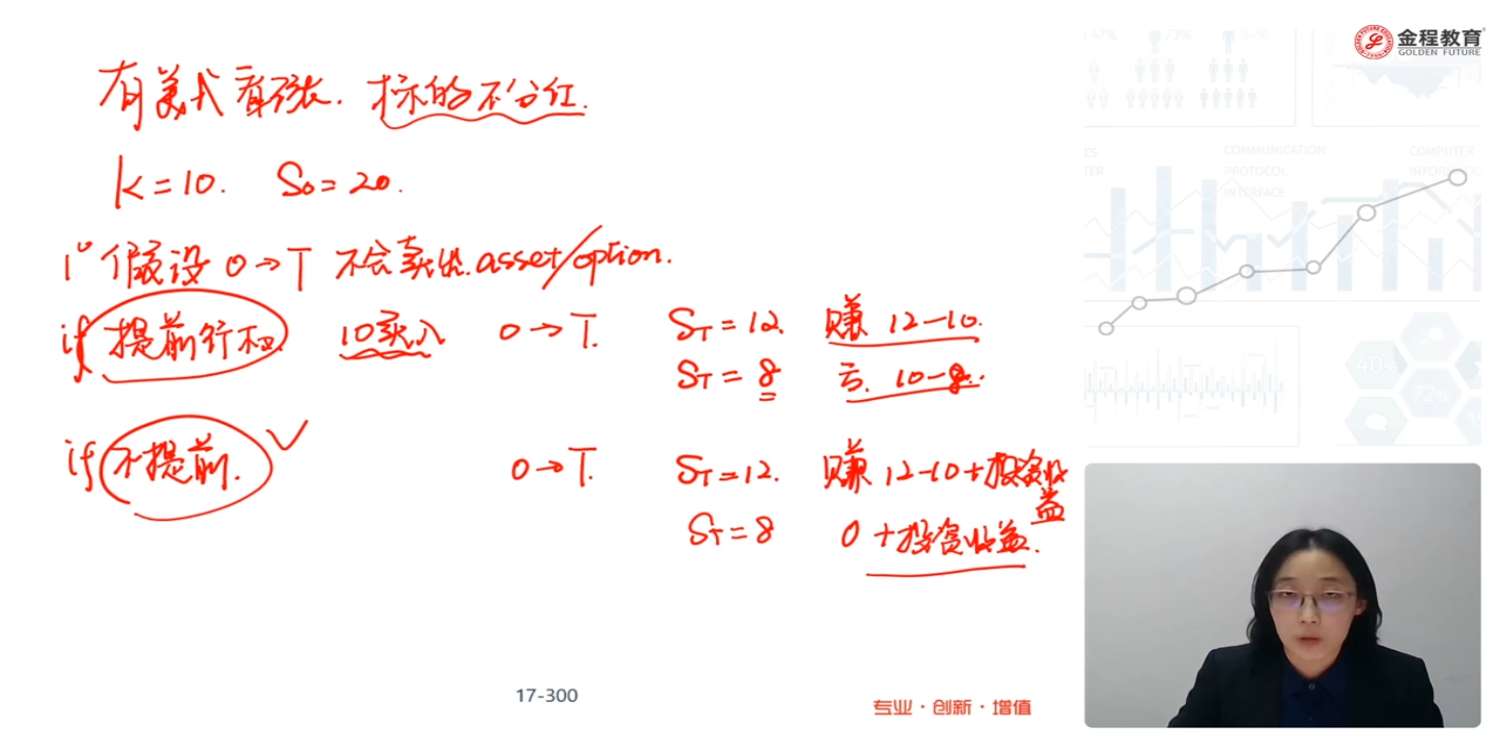 金程教育
GOLDEN FUTURE
有美式看涨. 标的不分红.
K=10. S₀=20.
1° 假设 0→T 不会卖出 asset/option.
if 提前行权 10买入 0→T. S_T=12. 赚 12-10.
S_T=8 亏. 10-8.
if 不提前. ✓ 0→T. S_T=12. 赚 12-10+投资收益
S_T=8 0+投资收益.
17-300
专业·创新·增值
COMMUNICATION
PROTOCOL
INTERFACE
COMPUTER